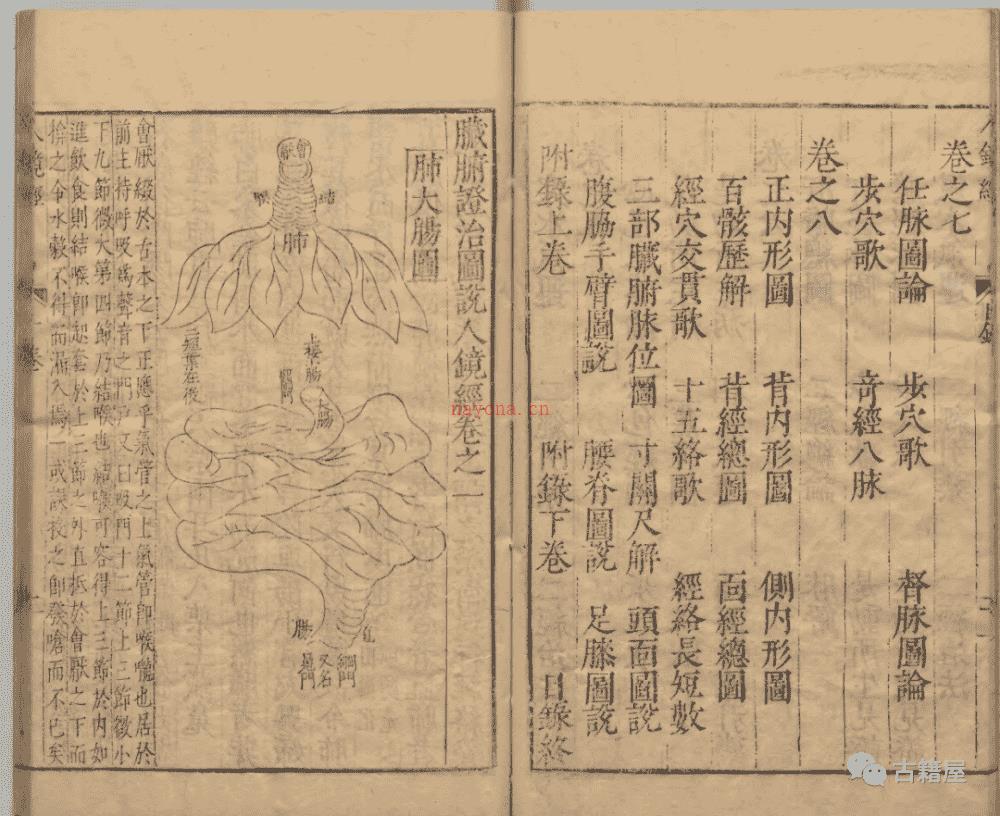 卷之七
任脉圖論 步穴歌 督脉圖論
步穴歌 奇經八脉
卷之八
正内形圖 背内形圖 側内形圖
百骸歷解 背經總圖 面經總圖
經穴交貫歌 十五絡歌 經絡長短數
三部臟腑脉位圖 寸關尺解 頭面圖說
腹脇手臂圖說 腰脊圖說 足膝圖說
附錄上卷 附錄下卷 目錄終
臟腑證治圖說人鏡經卷之一
肺大腸圖
會厭
喉
結
肺
二短葉在後
上接小腸
闌門
大腸
肛
腸
闌門又名
會厭綴於舌本之下正應乎氣管之上氣管即喉嚨也居於
前主持呼吸爲聲音之門戶又曰吸門十二節上三節微小
下九節微大第四節乃結喉也結喉可容得上三節於内如
進飲食則結喉即起套於上三節之外直抵於會厭之下而
俾之令水穀不得而漏入焉一或誤投之即發嗆而不已矣
nayona.cn
古籍屋